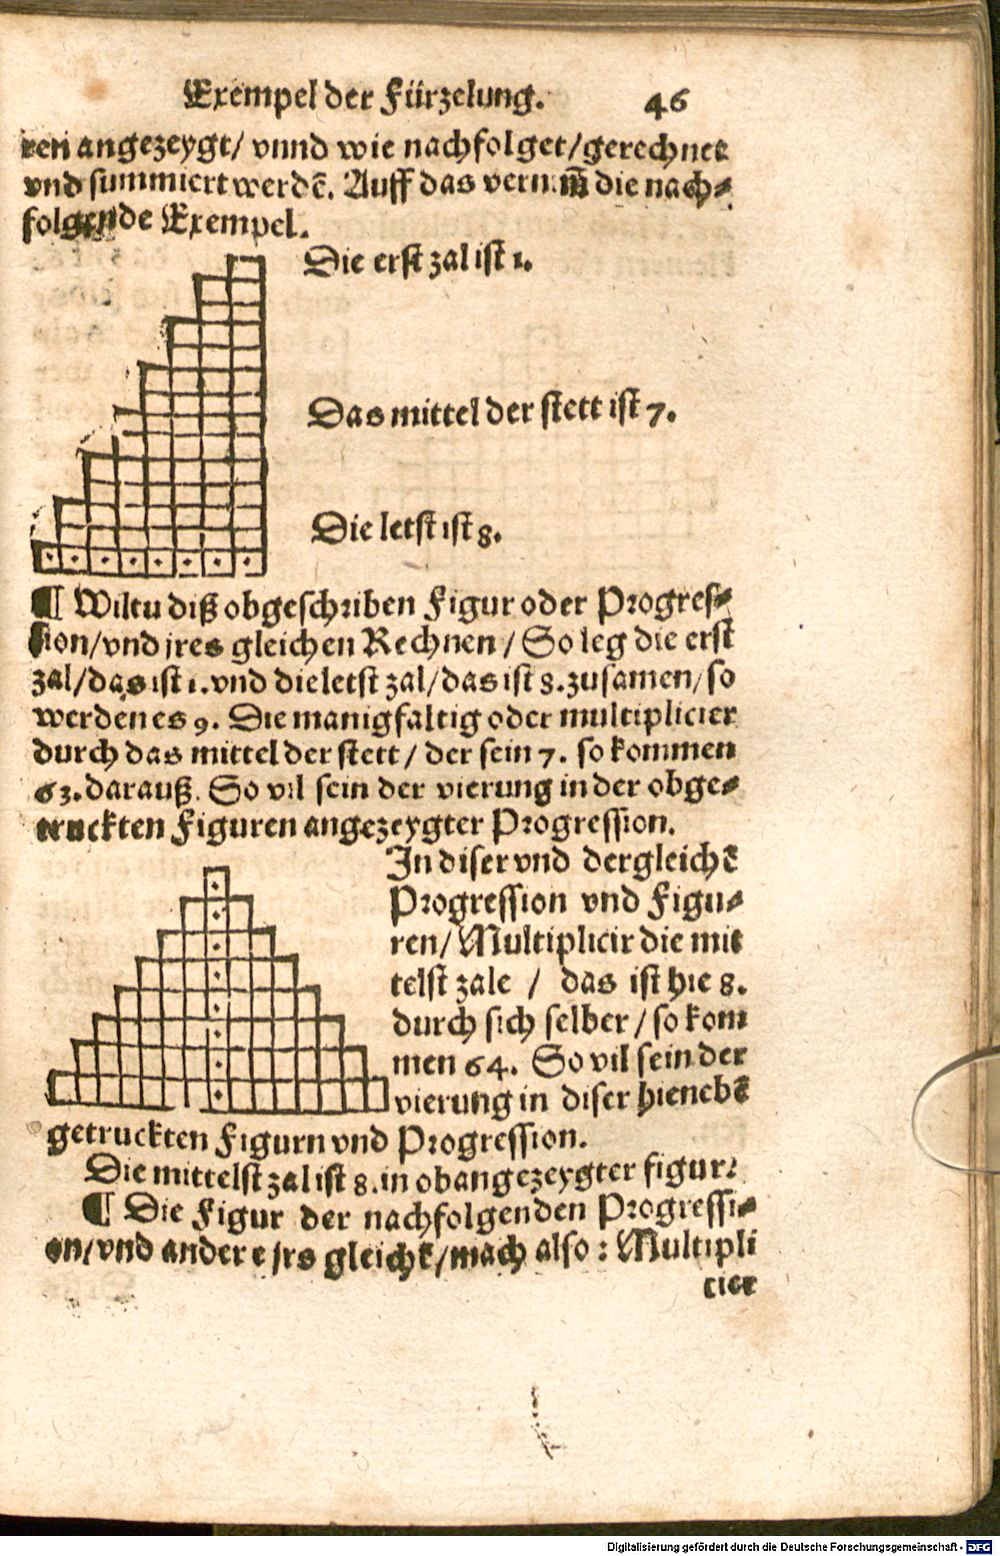 Exempel der Fürzelung. 46
ren angezeygt/ vnnd wie nachfolget/gerechnet
vnd summiert werdē. Auff das vernim̄ die nach⸗
folgende Exempel.
Die erst zal ist 1.
Das mittel der stett ist 7.
Die letst ist 8.
¶ Wiltu diß obgeschriben Figur oder Progres⸗
sion/vnd jres gleichen Rechnen / So leg die erst
zal/das ist 1. vnd die letst zal/das ist 8. zusamen/so
werden es 9. Die manigfaltig oder multiplicier
durch das mittel der stett / der sein 7. so kommen
63. darauß. So vil sein der vierung in der obge⸗
truckten Figuren angezeygter Progression.
In diser vnd dergleichē
Progression vnd Figu⸗
ren/ Multiplicir die mit
telst zale / das ist hie 8.
durch sich selber / so kom
men 64. So vil sein der
vierung in diser hienebē
getruckten Figurn vnd Progression.
Die mittelst zal ist 8. in obangezeygter figur.
¶ Die Figur der nachfolgenden Progressi⸗
on/vnd andere jrs gleichē/mach also : Multipli
cier
Digitalisierung gefördert durch die Deutsche Forschungsgemeinschaft - DFG